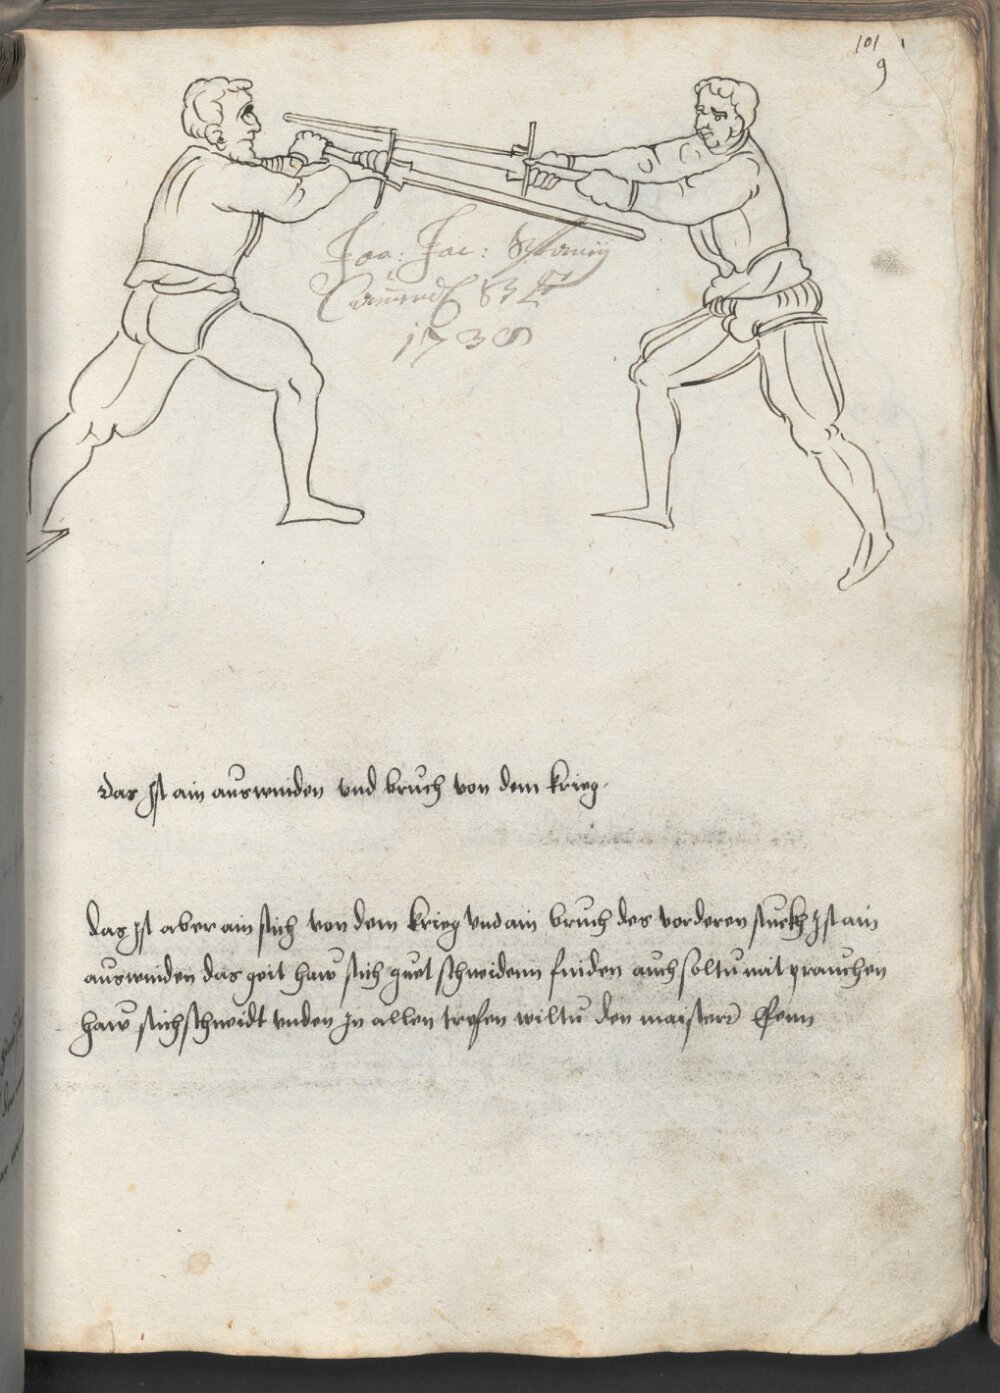 101
9
Joa: Jac:
1738
das Ist ain auswinden und bruch von dem krieg.
das Ist aber ain stich von dem krieg und ain bruch des vorderen stuckh Ist ain
auswinden das geit haw stich guet schneidenn finden auch soltu mit prauchen
haw stich schneidt unden In allen treffen wiltu den maisterr Effenn